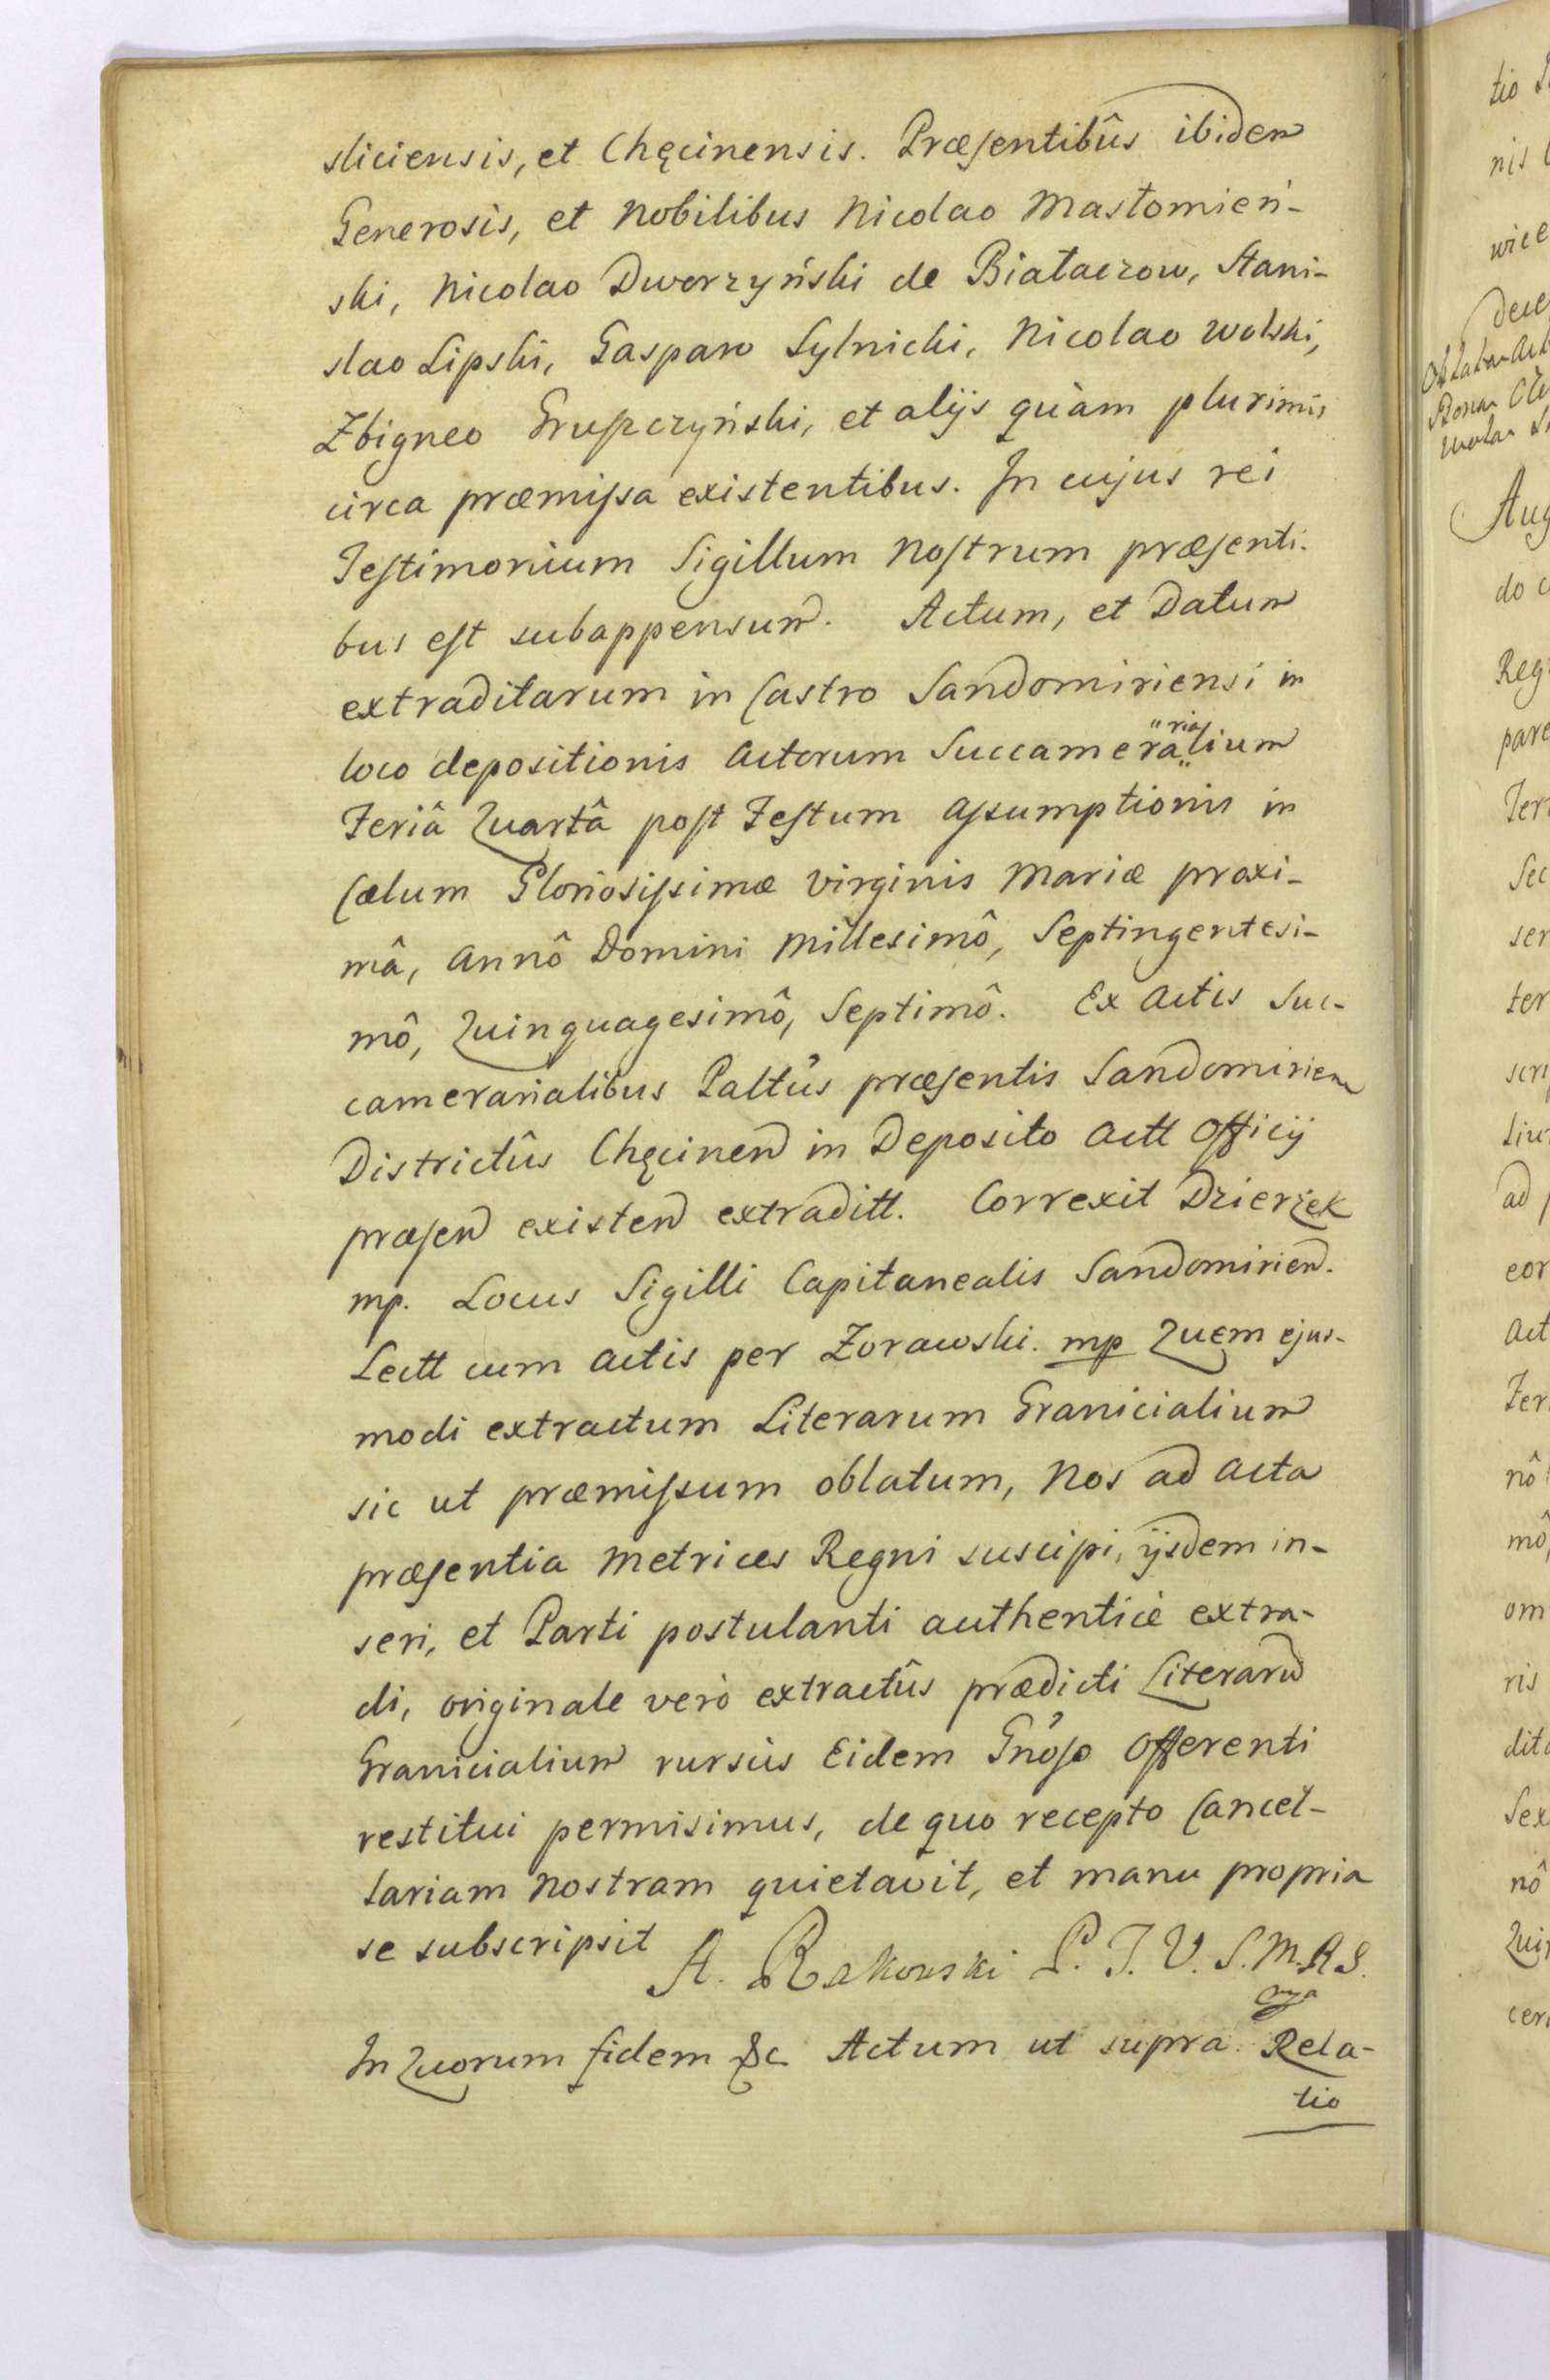 sliciensis, et Chęcinensis. Præsentibûs ibidem
Generosis, et Nobilibus Nicolao Mastomień-
ski, Nicolao Dworzyński de Białaczow, Stani-
slao Lipski, Gasparo Sylnicki, Nicolao Wolski,
Zbigneo Gruszczyński, et alijs quàm plurimis
circa præmissa existentibus. In cujus rei
Testimonium Sigillum Nostrum præsenti-
bus est subappensum. Actum, et Datum
extraditarum in Castro Sandomiriensi in
loco depositionis Actorum Succamerarialium
Feriâ Quartâ post Festum Assumptionis in
Cælum Gloriosissimæ Virginis Mariæ proxi-
mâ, Annô Domini Millesimô, Septingentesi-
mô, Quinquagesimô, Septimô. Ex Actis Suc-
camerarialibus Paltûs præsentis Sandomirien
Districtûs Chęcinen in Deposito Actt Officij
præsen existen extraditt. Correxit Dzierżek
mp. Locus Sigilli Capitanealis Sandomirien.
Lectt cum Actis per Zorawski. mp Quem ejus-
modi extractum Literarum Granicialium
sic ut præmissum oblatum, Nos ad Acta
præsentia Metrices Regni suscipi, ijsdem in-
seri, et Parti postulanti authenticè extra-
di, originale verò extractûs prædicti Literarum
Granicialium rursùs Eidem Gnoso Offerenti
restitui permisimus, de quo recepto Cancel-
lariam Nostram quietavit, et manu propria
se subscripsit A. Rakowski P. J. V. S. M. R S.
mp
In Quorum fidem &c Actum ut supra. Rela-
tio